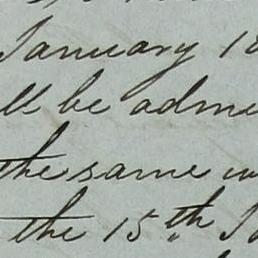 January 18
ll be adme
the same in
the 15th Ja